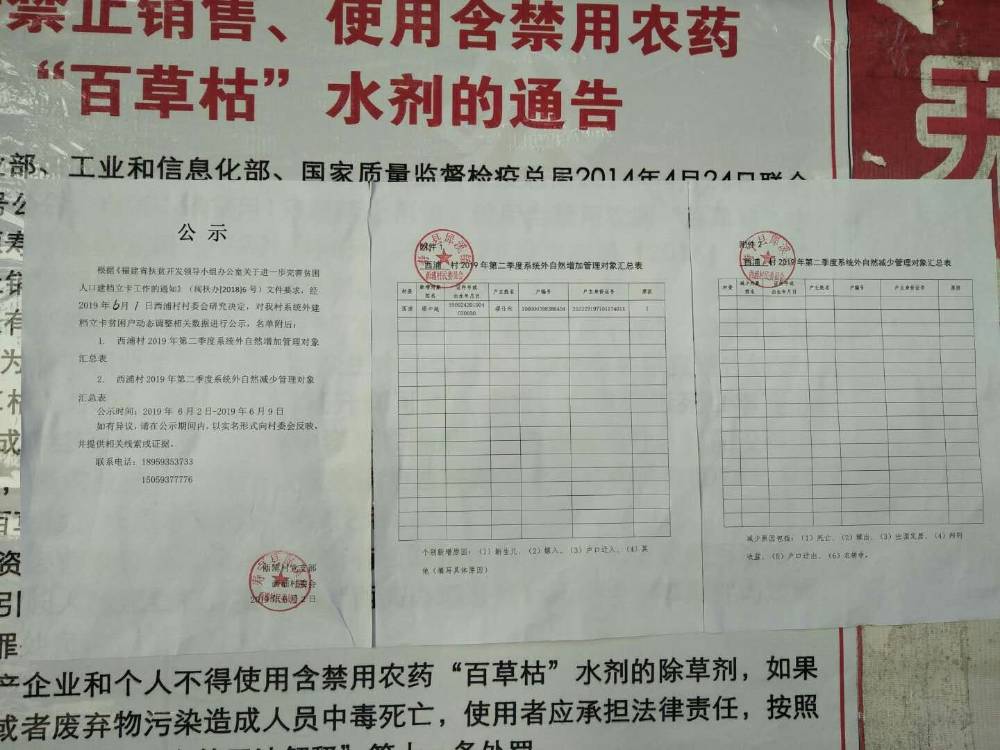 禁止销售、使用含禁用农药
“百草枯”水剂的通告
部、工业和信息化部、国家质量监督检疫总局2014年4月24日联合
公示
根据《福建省扶贫开发领导小组办公室关于进一步完善贫困
人口建档立卡工作的通知》（闽扶办[2018]6号）文件要求，经
2019年6月1日西浦村村委会研究决定，对我村系统外建
档立卡贫困户动态调整相关数据进行公示，名单附后：
1. 西浦村2019年第二季度系统外自然增加管理对象
汇总表
2. 西浦村2019年第二季度系统外自然减少管理对象
汇总表
公示时间：2019年6月2日-2019年6月9日
如有异议，请在公示期间内，以实名形式向村委会反映，
并提供相关线索或证据。
联系电话：18959353733
15059377776
西浦村党支部
西浦村委会
2019年6月2日
附件1
西浦村2019年第二季度系统外自然增加管理对象汇总表
村委 新增对象姓名 证件号或出生年月日 户主姓名 户编号 户主身份证号 原因
西浦
1
个别新增原因：（1）新生儿、（2）嫁入、（3）户口迁入、（4）其
他（填写具体原因）
附件2
西浦村2019年第二季度系统外自然减少管理对象汇总表
村委 减少对象姓名 证件号或出生年月日 户主姓名 户编号 户主身份证号 原因
减少原因包括：（1）死亡、（2）嫁出、（3）出国定居、（4）判刑
收监、（5）户口迁出、（6）失联等。
产企业和个人不得使用含禁用农药“百草枯”水剂的除草剂，如果
或者废弃物污染造成人员中毒死亡，使用者应承担法律责任，按照